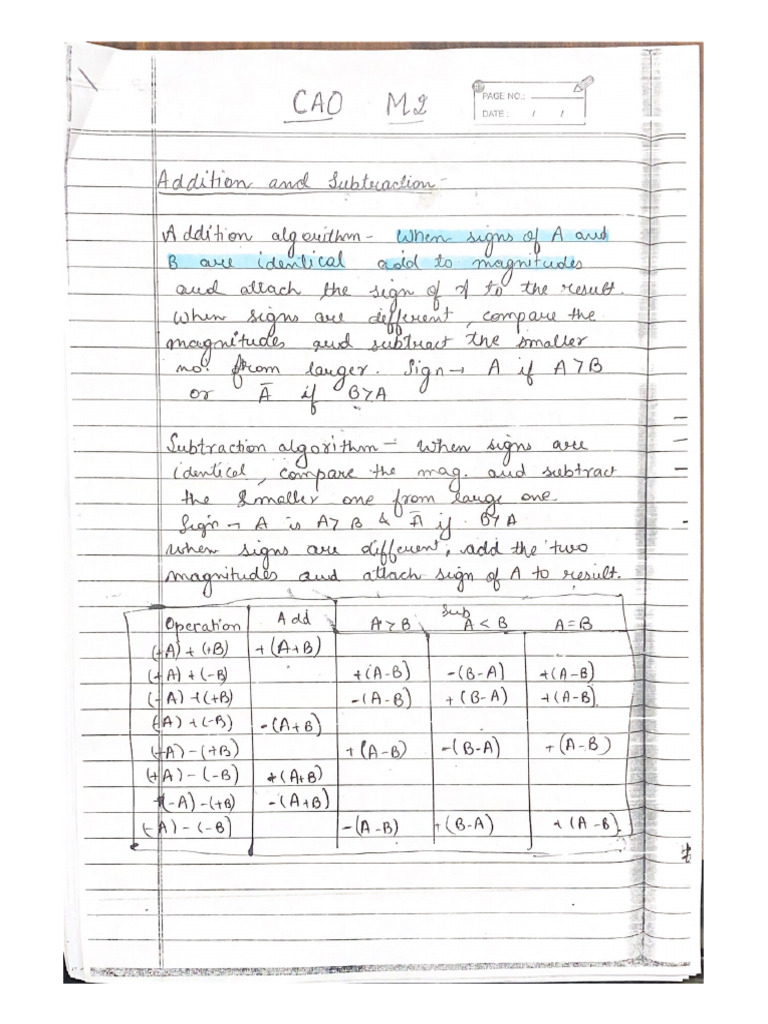 CAO M2
PAGE NO.:
DATE: / /
Addition and Subtraction-
Addition algorithm- When signs of A and
B are identical add to magnitudes
and attach the sign of A to the result.
When signs are different, compare the
magnitudes and subtract the smaller
no. from larger. Sign → A if A>B
or Ā if B>A
Subtraction algorithm- When signs are
identical, compare the mag. and subtract
the smaller one from large one.
Sign → A is A>B & Ā if B>A
When signs are different, add the two
magnitudes and attach sign of A to result.
Operation Add Sub
A>B A<B A=B
(+A)+(+B) +(A+B)
(+A)+(-B) +(A-B) -(B-A) +(A-B)
(-A)+(+B) -(A-B) +(B-A) +(A-B)
(-A)+(-B) -(A+B)
(+A)-(+B) +(A-B) -(B-A) +(A-B)
(+A)-(-B) +(A+B)
(-A)-(+B) -(A+B)
(-A)-(-B) -(A-B) +(B-A) +(A-B)